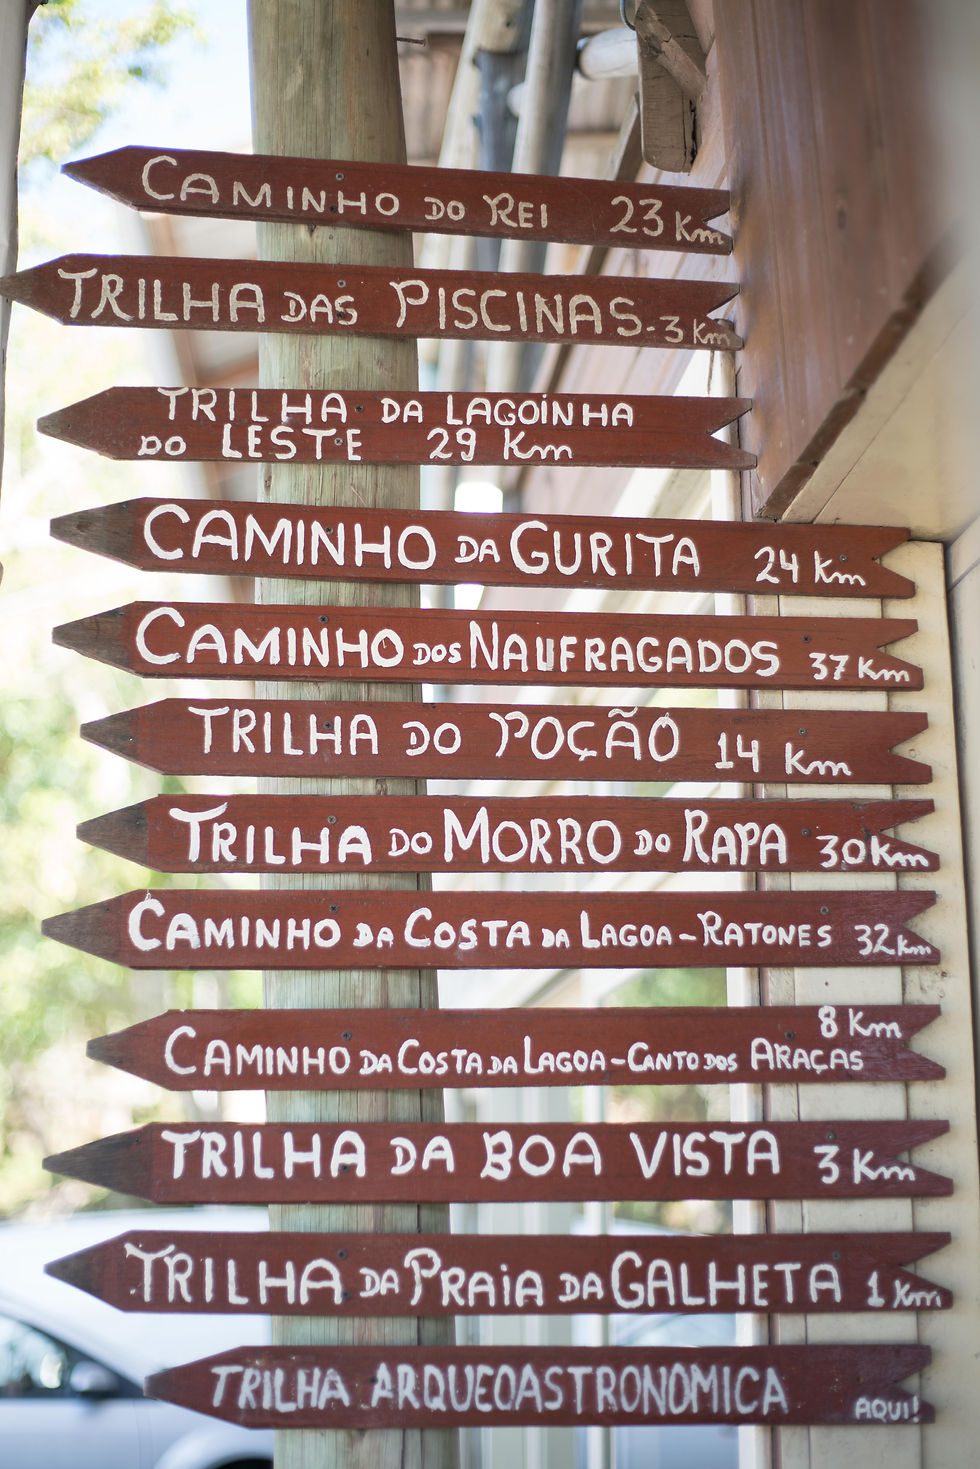 CAMINHO DO REI 23 Km
TRILHA DAS PISCINAS - 3 Km
TRILHA DA LAGOINHA
DO LESTE 29 Km
CAMINHO DA GURITA 24 Km
CAMINHO DOS NAUFRAGADOS 37 Km
TRILHA DO POÇÃO 14 Km
TRILHA DO MORRO DO RAPA 30 Km
CAMINHO DA COSTA DA LAGOA - RATONES 32 Km
8 Km
CAMINHO DA COSTA DA LAGOA - CANTO DOS ARAÇAS
TRILHA DA BOA VISTA 3 Km
TRILHA DA PRAIA DA GALHETA 1 Km
TRILHA ARQUEOASTRONOMICA AQUI!